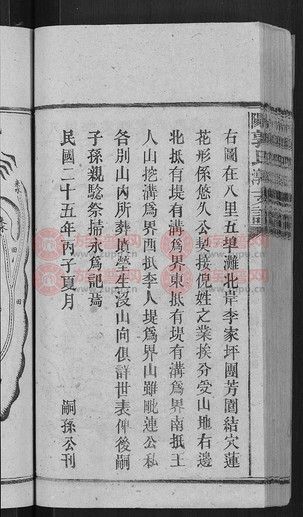 陽郭氏 支譜
右圖在八里五堤灘北岸李家坪團芳園結穴蓮
花形係悠久公契接倪姓之業挨分受山地右邊
北抵有堤有溝爲界東抵有堤有溝爲界南抵王
人山挖溝爲界西抵李人堤爲界山雖毗連公私
各別山內所葬墳塋生沒山向俱詳世表俾後嗣
子孫親騐祭掃永爲記焉
民國二十五年丙子夏月 嗣孫公刊